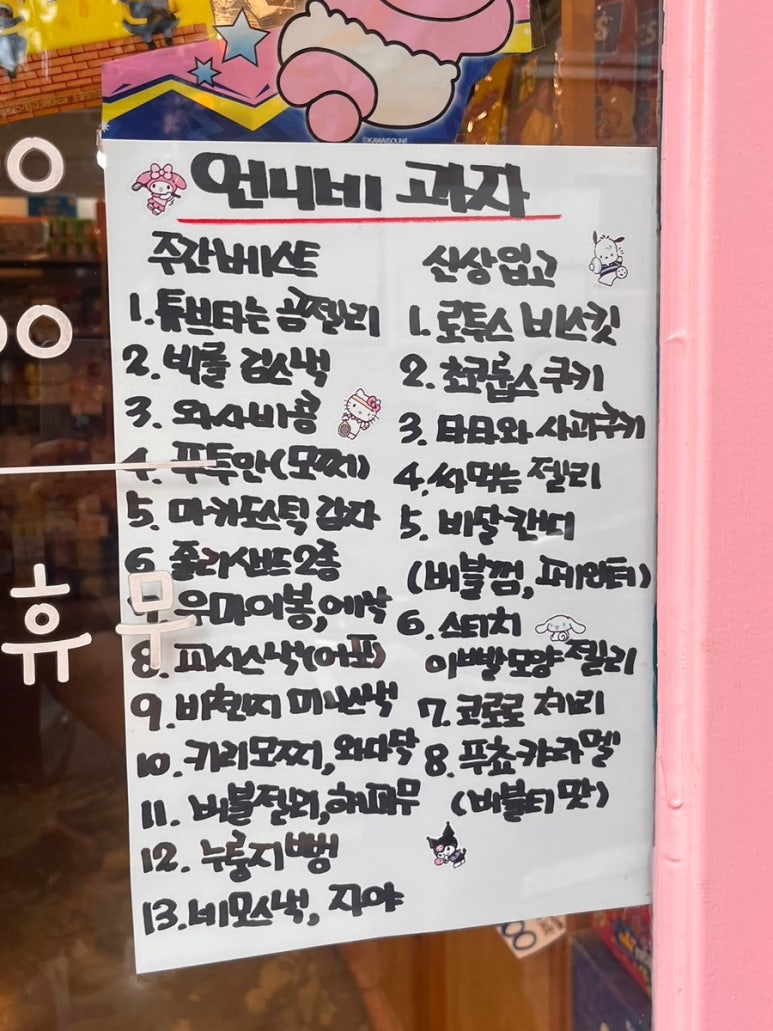 ©KAWAISOUNI
언니네 과자
주간베스트
1. 튜브타는 곰젤리
2. 빅롤 김스낵
3. 와사비콩
4. 푸투안(모찌)
5. 마커도스틱 감자
6. 졸리샌드 2종
7. 우마이봉, 에낙
8. 피시스낵(어포)
9. 비첸지 미니스낵
10. 키리모찌, 와다닥
11. 버블젤리, 하피무
12. 누룽지뻥
13. 네모스낵, 자야
신상입고
1. 로투스 비스킷
2. 초코룹스쿠키
3. 타타와 사과쿠키
4. 싸먹는 젤리
5. 비달캔디
(버블껌, 페인터)
6. 스티치
이빨모양 젤리
7. 코로로 체리
8. 푸쵸캬라멜
(버블티 맛)
휴무